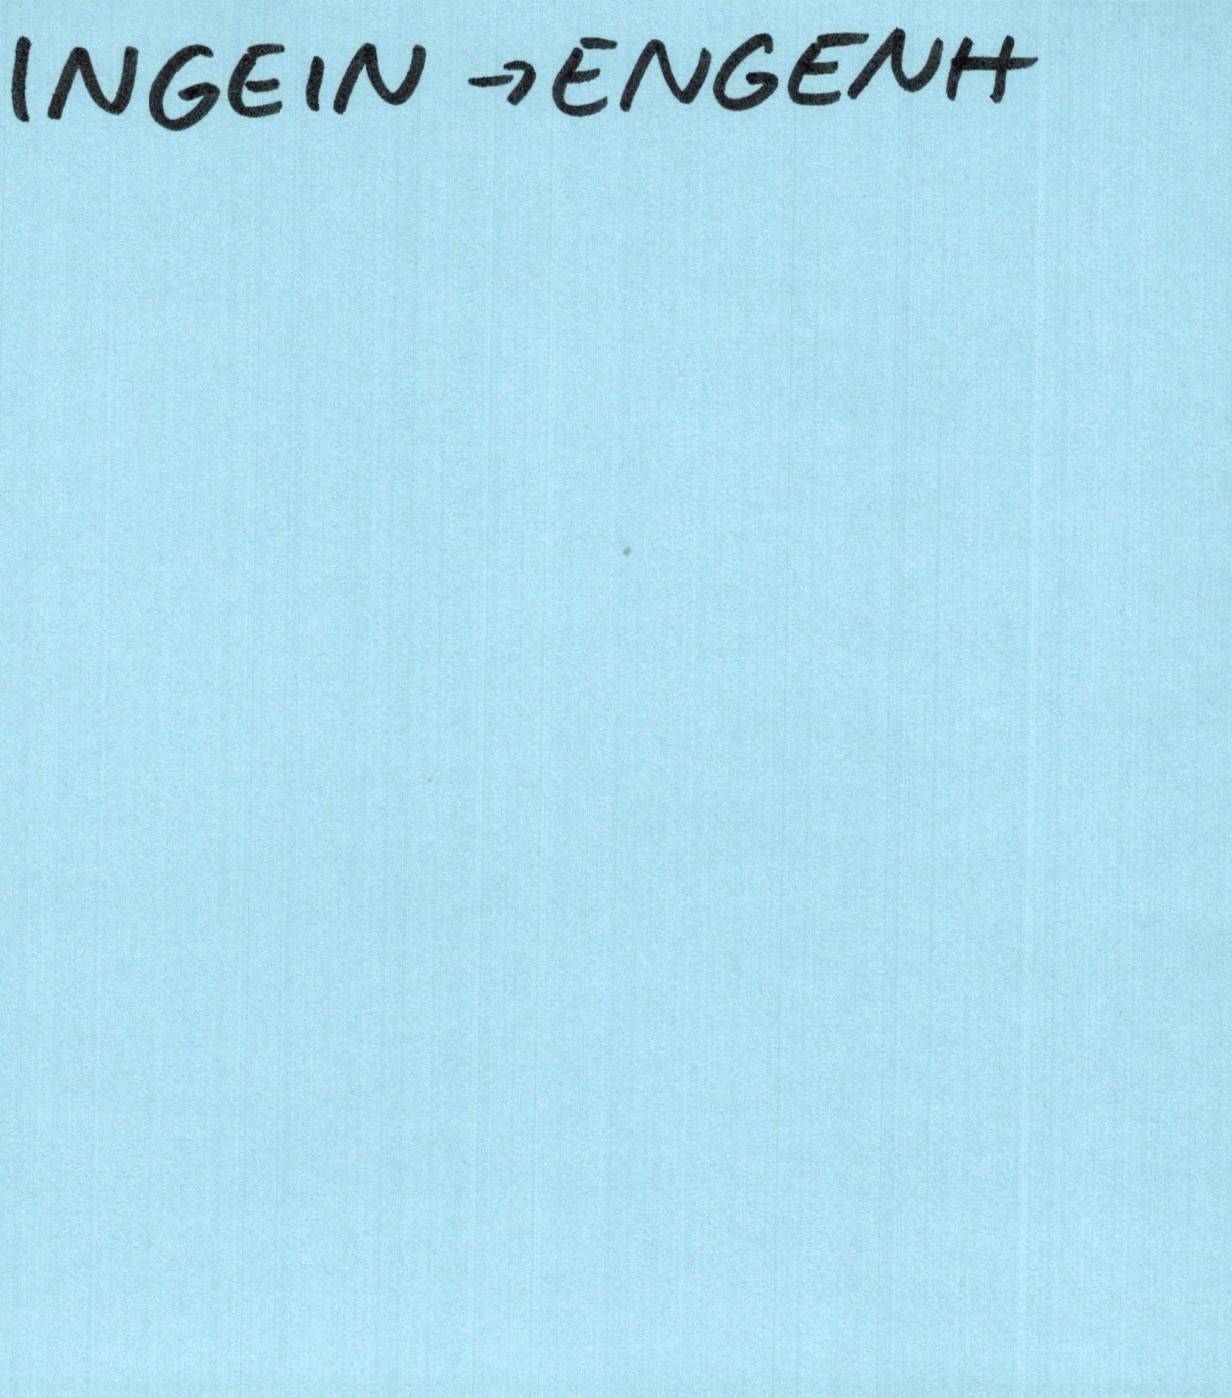 INGEIN → ENGENH